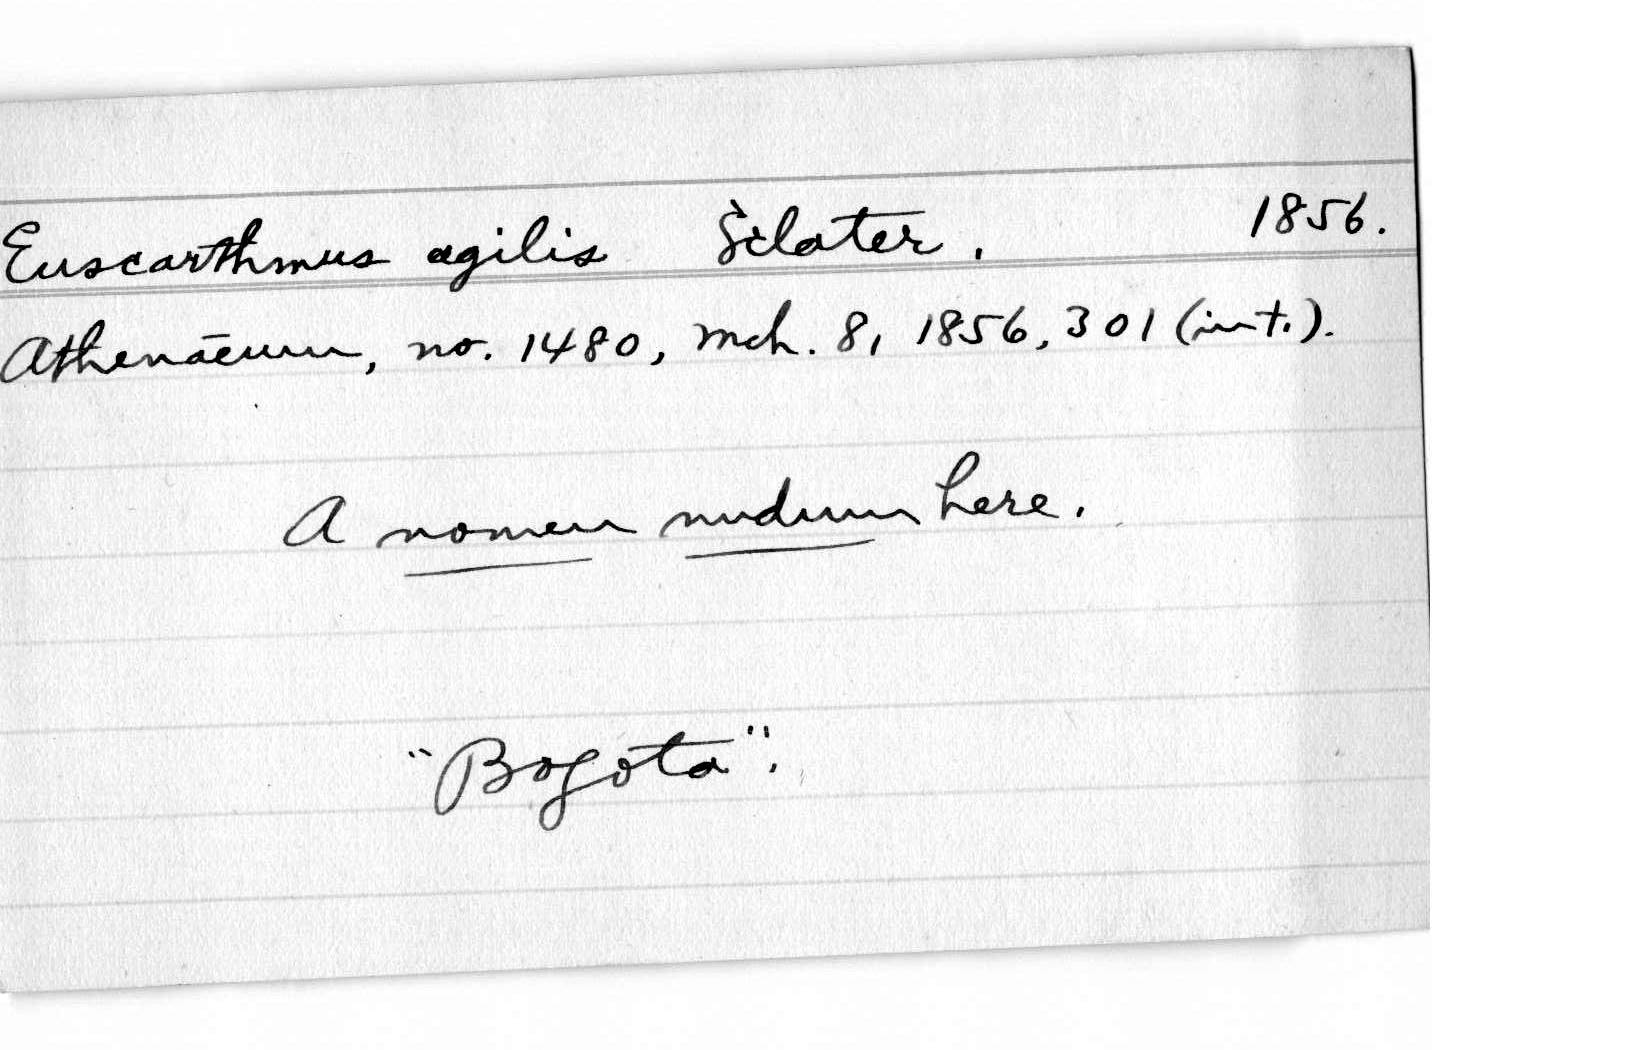 Euscarthmus agilis Sclater. 1856.
Athenāeum, no. 1480, Mch. 8, 1856, 301 (int.).
A nomen nudum here.
"Bogota".